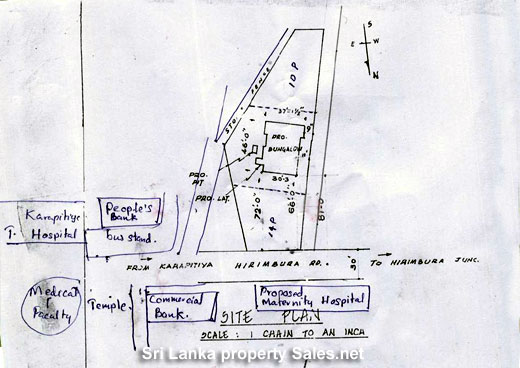 S
E W
N
10 P
STO FENCE
37'-1½"
PRO.
BUNGALOW
46'-0"
PRO.
PIT
PRO. LAT.
30-3
72'-0"
68'-0"
14 P
People's
Bank
bus stand.
Karapitiya
T. Hospital
FROM KARAPITIYA HIRIMBURA RD. 30' TO HIRIMBURA JUNC.
Medical
Faculty
Temple
Commercial
Bank.
Proposed
Maternity Hospital
SITE PLAN
SCALE : 1 CHAIN TO AN INCH
Sri Lanka property Sales.net